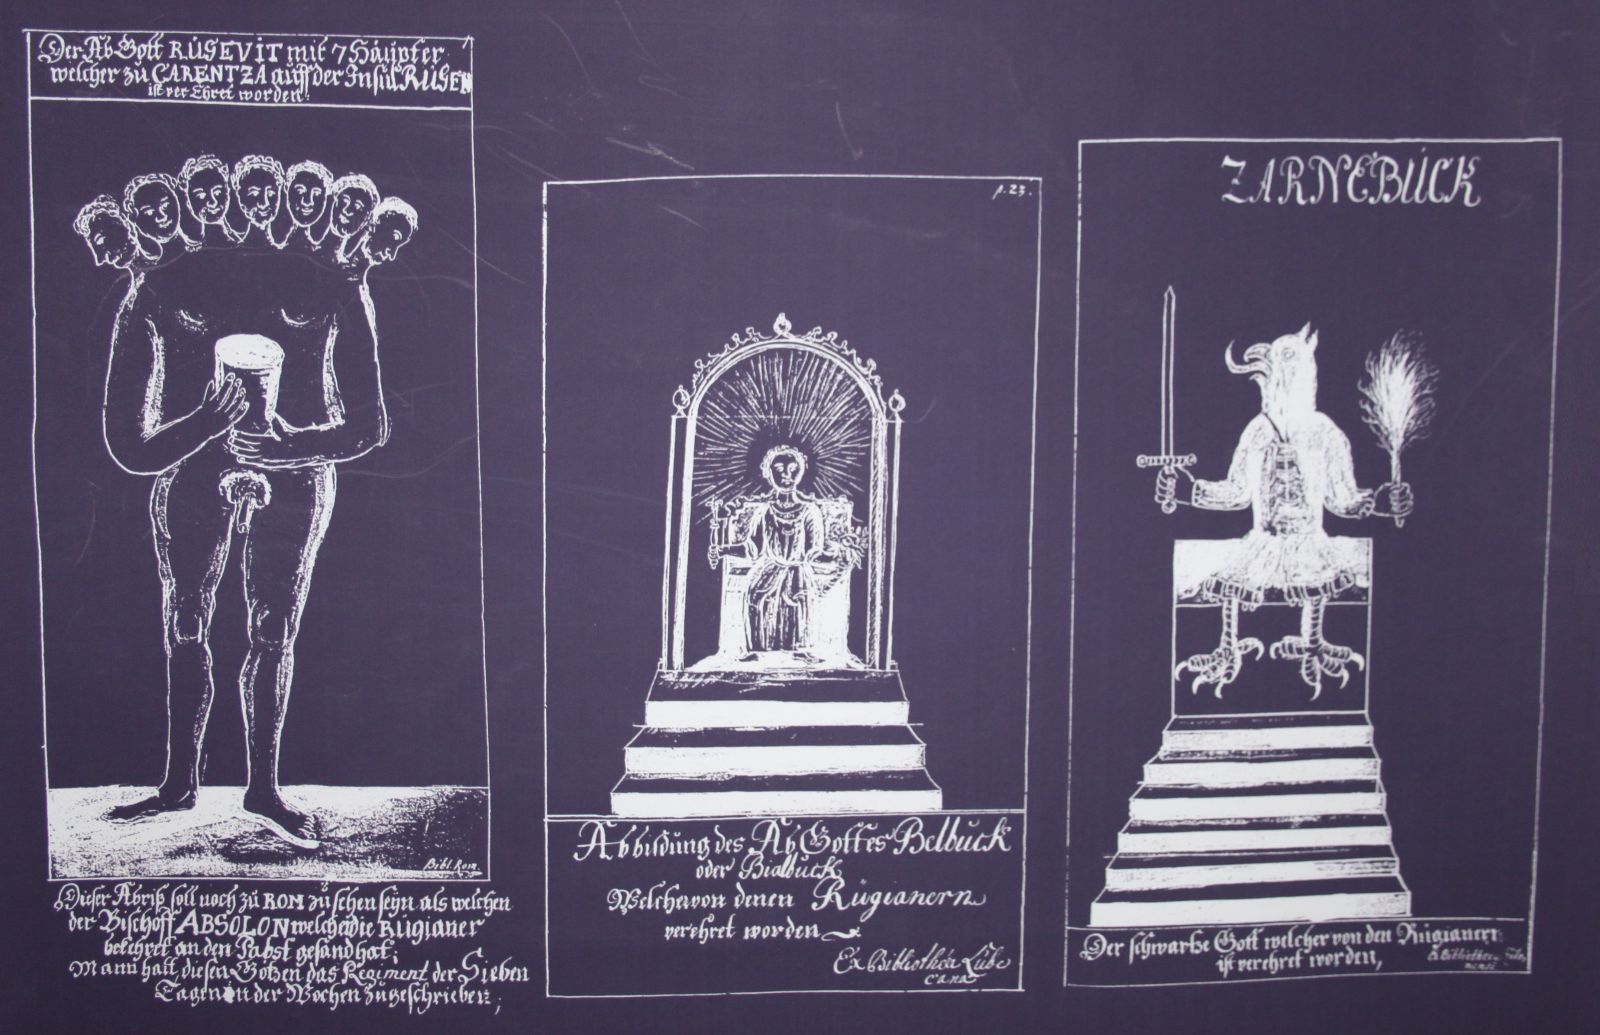 Der Ab Gott RÜSEVIT mit 7 Häupter
welcher zu CARENTZA auff der Insul RÜGEN
ist ver Ehret worden:
Bibl. Rom.
Dieser Abriß soll noch zu ROM zu sehen seyn als welchen
der Bischoff ABSOLON welcher die Rügianer
bekehret an den Pabst gesand hat;
Mann hatt diesen Götzen das Regiment der Sieben
Tagen in der Wochen zugeschrieben;
p. 23.
Abbildung des Ab Gottes Belbuck
oder Bialbuck
Welcher von denen Rügianern
verehret worden
Ex Bibliothea Lübe
cana
ZARNEBÜCK
Der schwartze Gott welcher von den Rügianern
ist verehret worden,
Ex Bibliothea